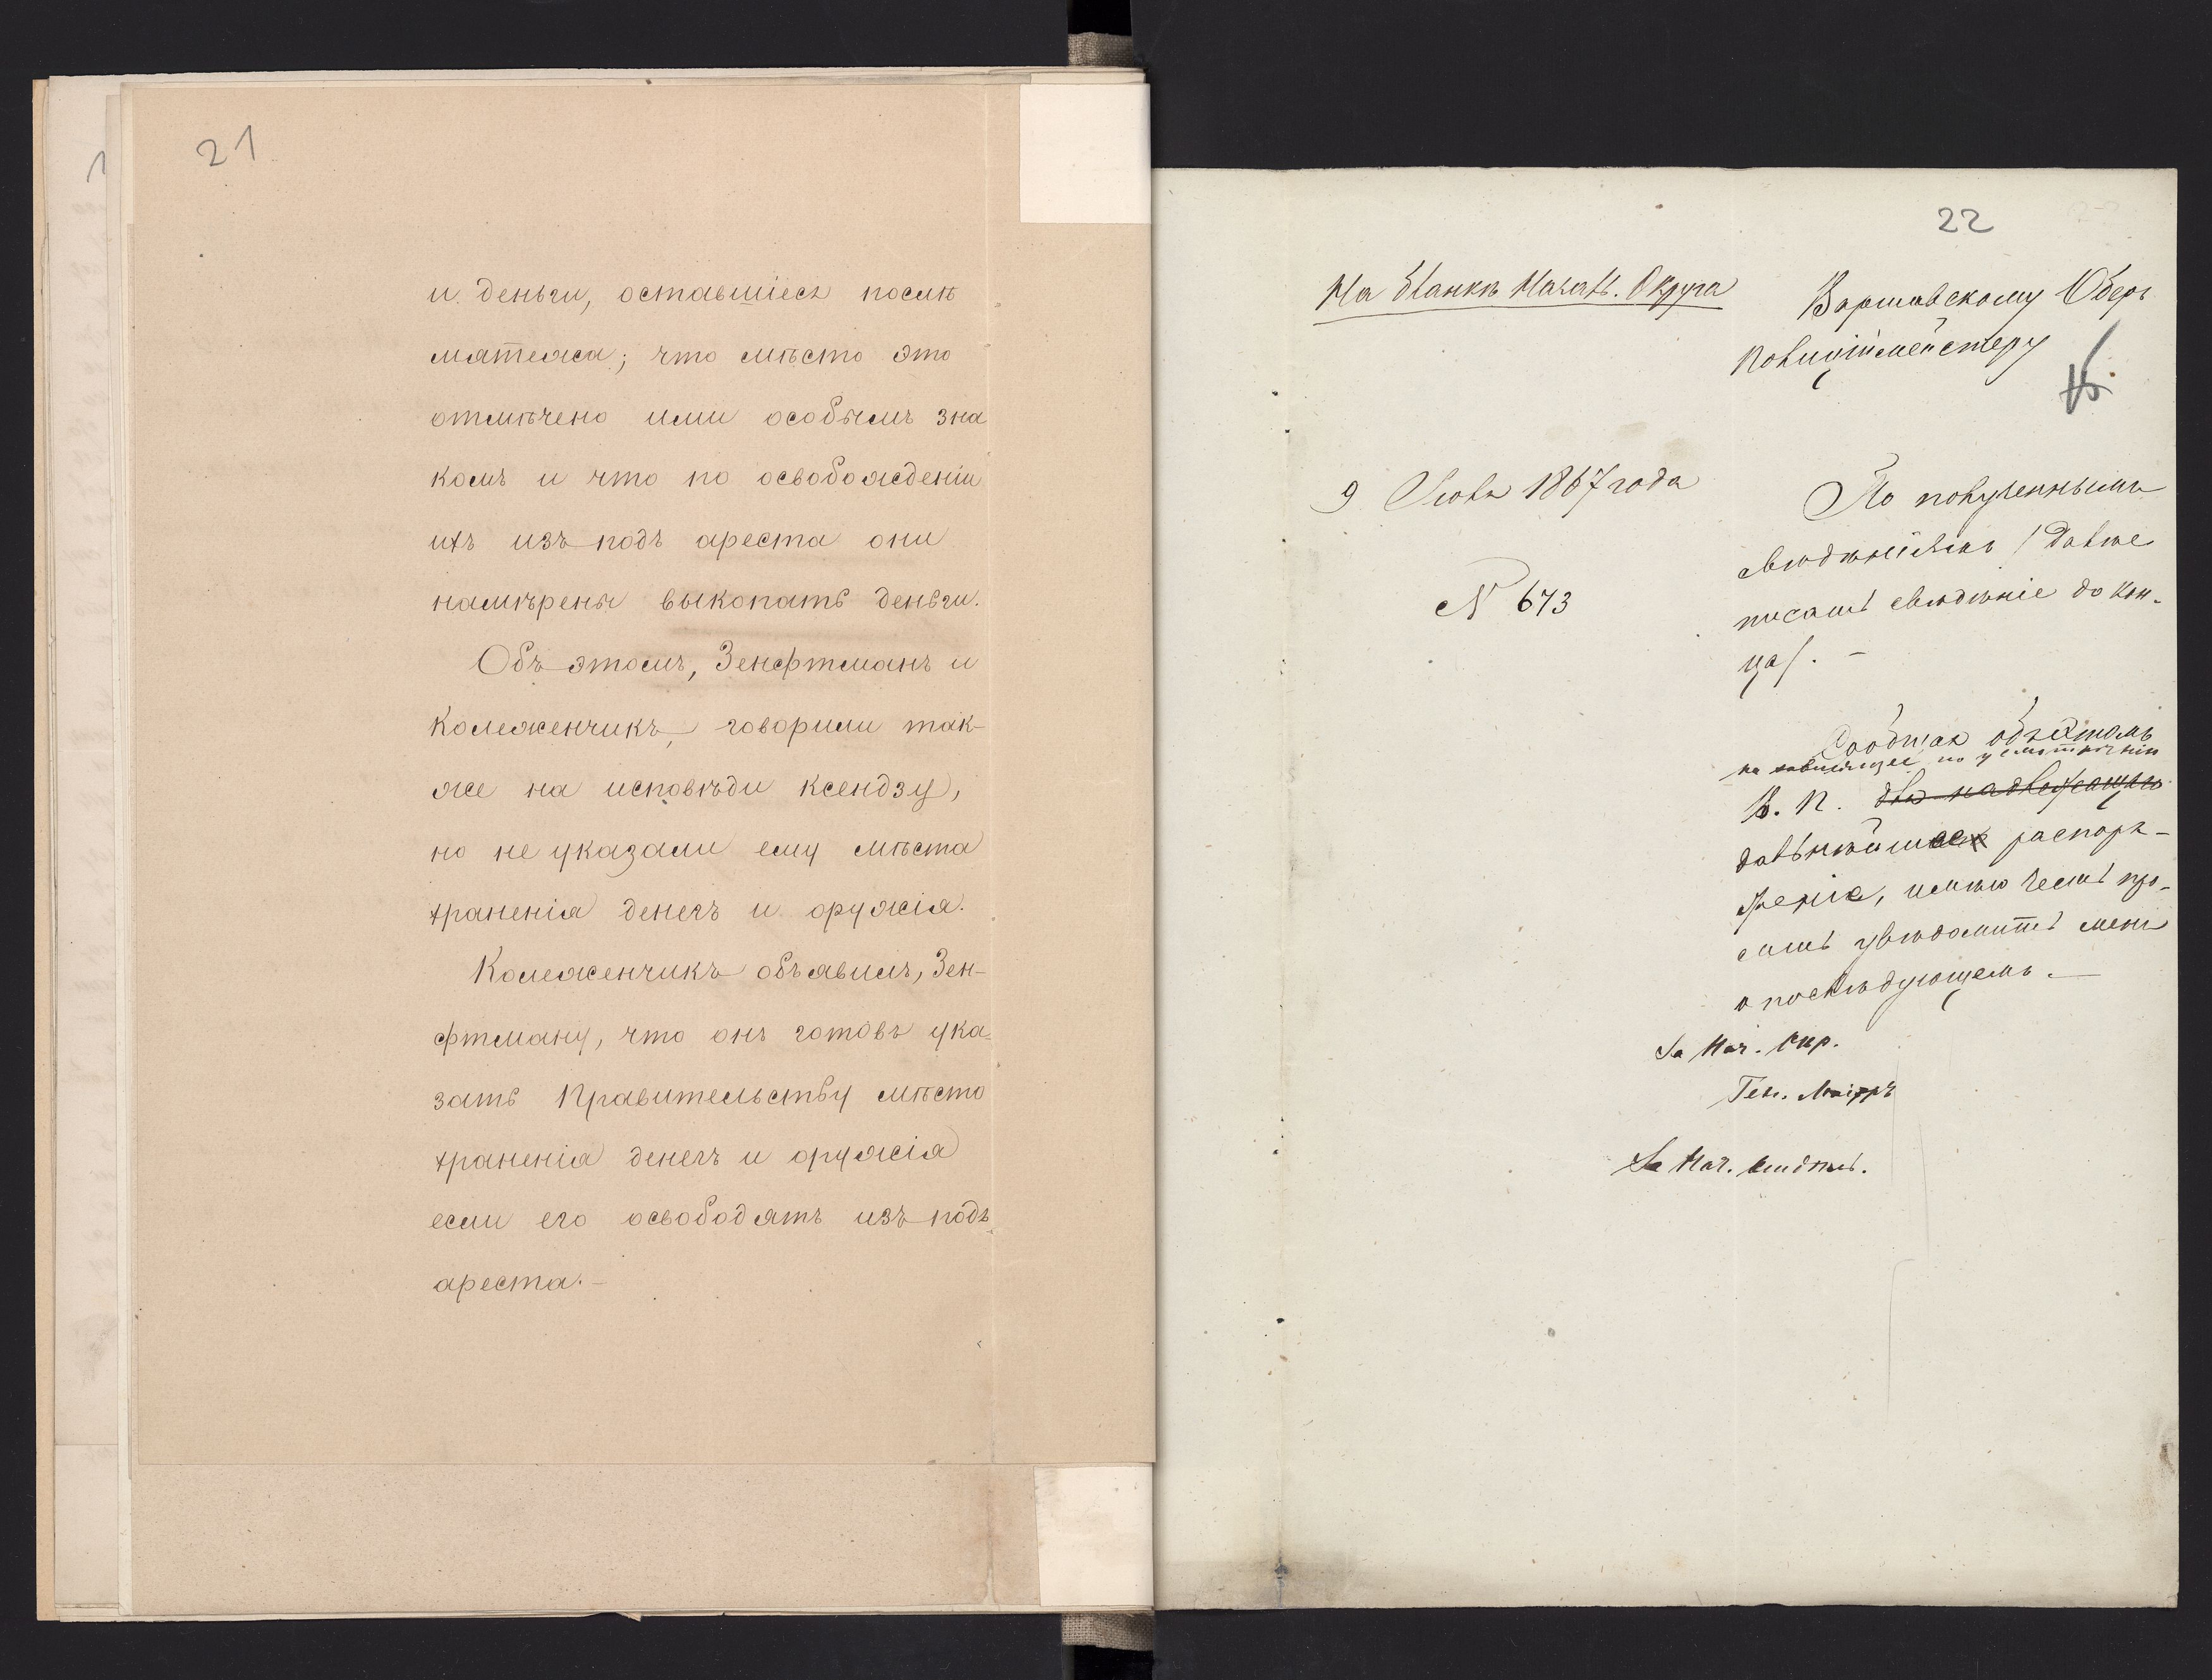 21
и деньги, оставшіесь послѣ
мятежа; что мѣсто это
отмѣчено ими особымъ зна
комъ и что по освобожденіи
ихъ изъ подъ ареста они
намѣрены выкопать деньги.
Объ этомъ, Зенфтманъ и
Коложенчикъ, говорили так-
же на исповѣди ксендзу,
но не указали ему мѣста
храненія денегъ и оружія.
Коложенчикъ объявилъ, Зен-
фтману, что онъ готовъ ука-
зать Правительству мѣсто
храненія денегъ и оружія
если его освободятъ изъ подъ
ареста.-
22
На бланкѣ Начал. Округа
Варшавскому Оберъ
Полиціймейстеру
9 Іюля 1867 года
№ 673
По полученнымъ
свѣдѣніямъ /Далѣе
писать свѣдѣніе до кон-
ца/. -
Сообщая объ этомъ
на зависящее по усмотрѣнію
В. П. для надлежащаго
дальнѣйшее распоря-
женіе, имѣю честь про-
сить увѣдомить меня
о послѣдующемъ. -
За Нач. Окр.
Ген. Маіоръ
За Нач.